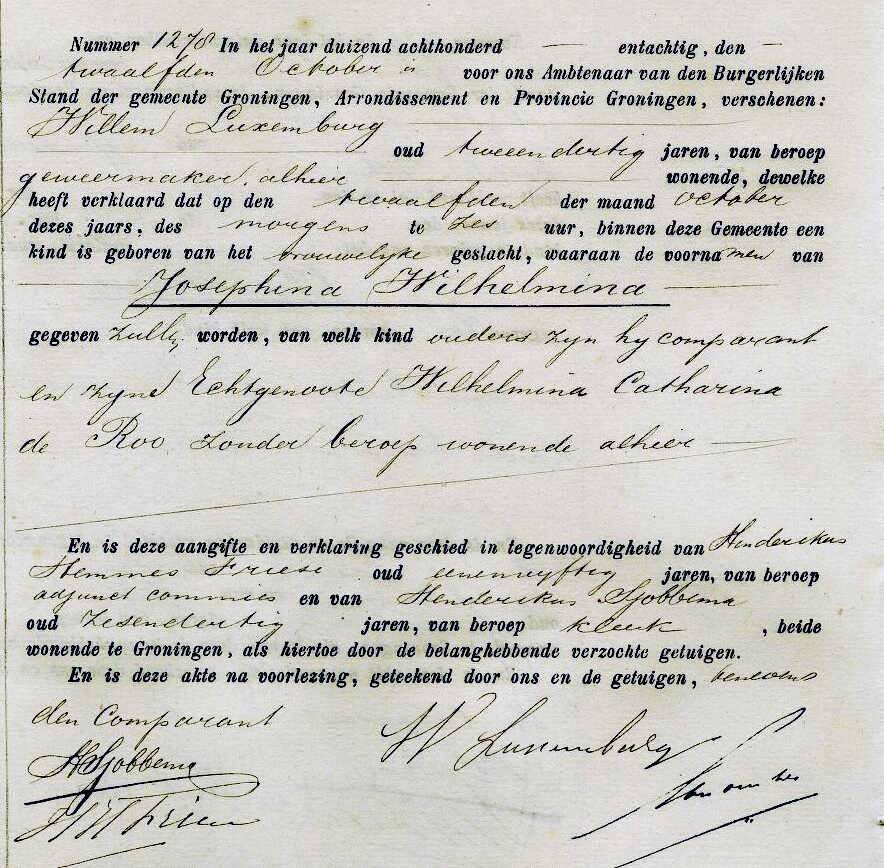 Nummer 1278 In het jaar duizend achthonderd — entachtig, den —
twaalfden October is voor ons Ambtenaar van den Burgerlijken
Stand der gemeente Groningen, Arrondissement en Provincie Groningen, verschenen:
Willem Luxemburg
oud tweeendertig jaren, van beroep
geweermaker, alhier wonende, dewelke
heeft verklaard dat op den twaalfden der maand October
dezes jaars, des morgens te zes uur, binnen deze Gemeente een
kind is geboren van het vrouwelyke geslacht, waaraan de voornamen van
Josephina Wilhelmina
gegeven zullen worden, van welk kind ouders zyn hy comparant
en zyne Echtgenoote Wilhelmina Catharina
de Roo zonder beroep wonende alhier —
En is deze aangifte en verklaring geschied in tegenwoordigheid van Henderikus
Hemmes Friese oud eenenvyftig jaren, van beroep
adjunct commies en van Henderikus Sjobbema
oud zesendertig jaren, van beroep klerk, beide
wonende te Groningen, als hiertoe door de belanghebbende verzochte getuigen.
En is deze akte na voorlezing, geteekend door ons en de getuigen, benevens
den Comparant
W Luxemburg
HSjobbema
HH Friese